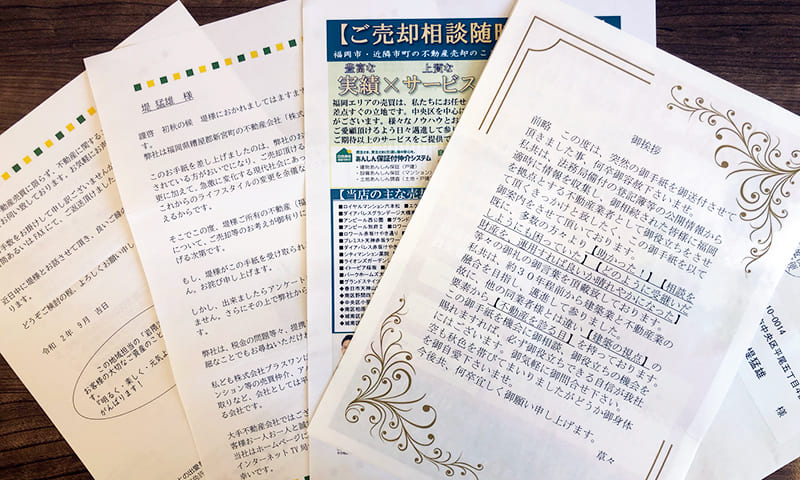 売買に限らず、不動産に関する
お伺い致しております。お気軽にお声
手数をお掛けして申し訳ございませんが
近日中に堤様とお話させて頂き、良いご縁
ります。
どうぞご検討の程、よろしくお願い申し
令和 2年 9月 吉日
この地域担当の「訪問
お客様の大切なご資産のこと
で明るく・楽しく・元気よ
がんばります！
堤 猛雄 様
謹啓 初秋の候 堤様におかれましてはますます
す。
弊社は福岡県糟屋郡新宮町の不動産会社「株式
このお手紙を差し上げましたのは、弊社のお
されている方がおいでになり、ご売却頂ける
更に加えて、急激に変化する現代社会にあっ
これからのライフスタイルの変更を余儀な
えるからです。
そこでこの度、堤様ご所有の「福岡
について、売却等のお考えが御有りに
げる次第です。
もし、堤様がこの手紙を受け取られ
ん。お詫び申し上げます。
しかし、出来ましたらアンケート
ません。さらにその上で弊社から
す。
弊社は、税金の問題等々、提携
細なことでもお尋ねいただけれ
私ども株式会社プラスワン
ンション等の売買仲介、ア
取りなど、会社としては平
る会社です。
大手不動産会社ではござ
客様お一人お一人と誠
当社はホームページに
インターネットTV局
幸いです。
【ご売却相談随時
福岡市・近隣市町の不動産売却のこ
豊富な 上質な
実績×サービス
福岡エリアの売買は、私たちにお任せ
差点すぐの立地です。中央区を中心に
がございます。様々なノウハウとお
ご愛顧頂けるよう日々邁進して参り
ご期待以上のサービスをご提供で
あんしん保証付仲介システム
【当店の主な売
■ロイヤルマンション六本松
■ダイアパレスグランデージ大橋
■アンピール西公園
■アンピール別府Ⅱ
■ロワール赤坂けやき通り
■プレミスト天神赤坂タワー
■ダイアパレス赤坂
■シティマンション薬院
■ライオンズガーデン
■イトーピア桜坂
■パークホームズ
■グランドステイツ
御挨拶
前略 この度は、突然の御手紙を御送付させて
頂きました事、何卒御容赦下さいませ。
私共は、法務局備付の登記簿等の公開情報から
適時に情報を収集し、御相続された皆様に福岡
を拠点とする不動産業者として御役立ちさせて
頂くきっかけと致したく、この御手紙を以て
御案内をさせて頂いております。
既に、多数の方々より【助かった！】【相談を
しようにも困っていた】【どのように受継いだ
財産を、運用すれば良いか晴れやかになった】
等々の御礼の御言葉を頂戴致しております。
私共は、約30年程前から建築業と不動産業の
融合を目指し、邁進して参りました。
故に、他の同業者様とは違い【建築の視点】の
要素から【不動産を診る目】を持っております。
この御手紙を機会に御相談・御役立ちの機会を
賜れますれば、必ず御役立ちできる自信が我社
にはございます。御気軽に御問合せ下さい。
空も秋色を帯びてまいりましたがどうか御身体
を御自愛下さいませ。
今後共、何卒宜しく御願い申し上げます。
草々
10-0014
中央区平尾五丁目4
堤猛雄
様